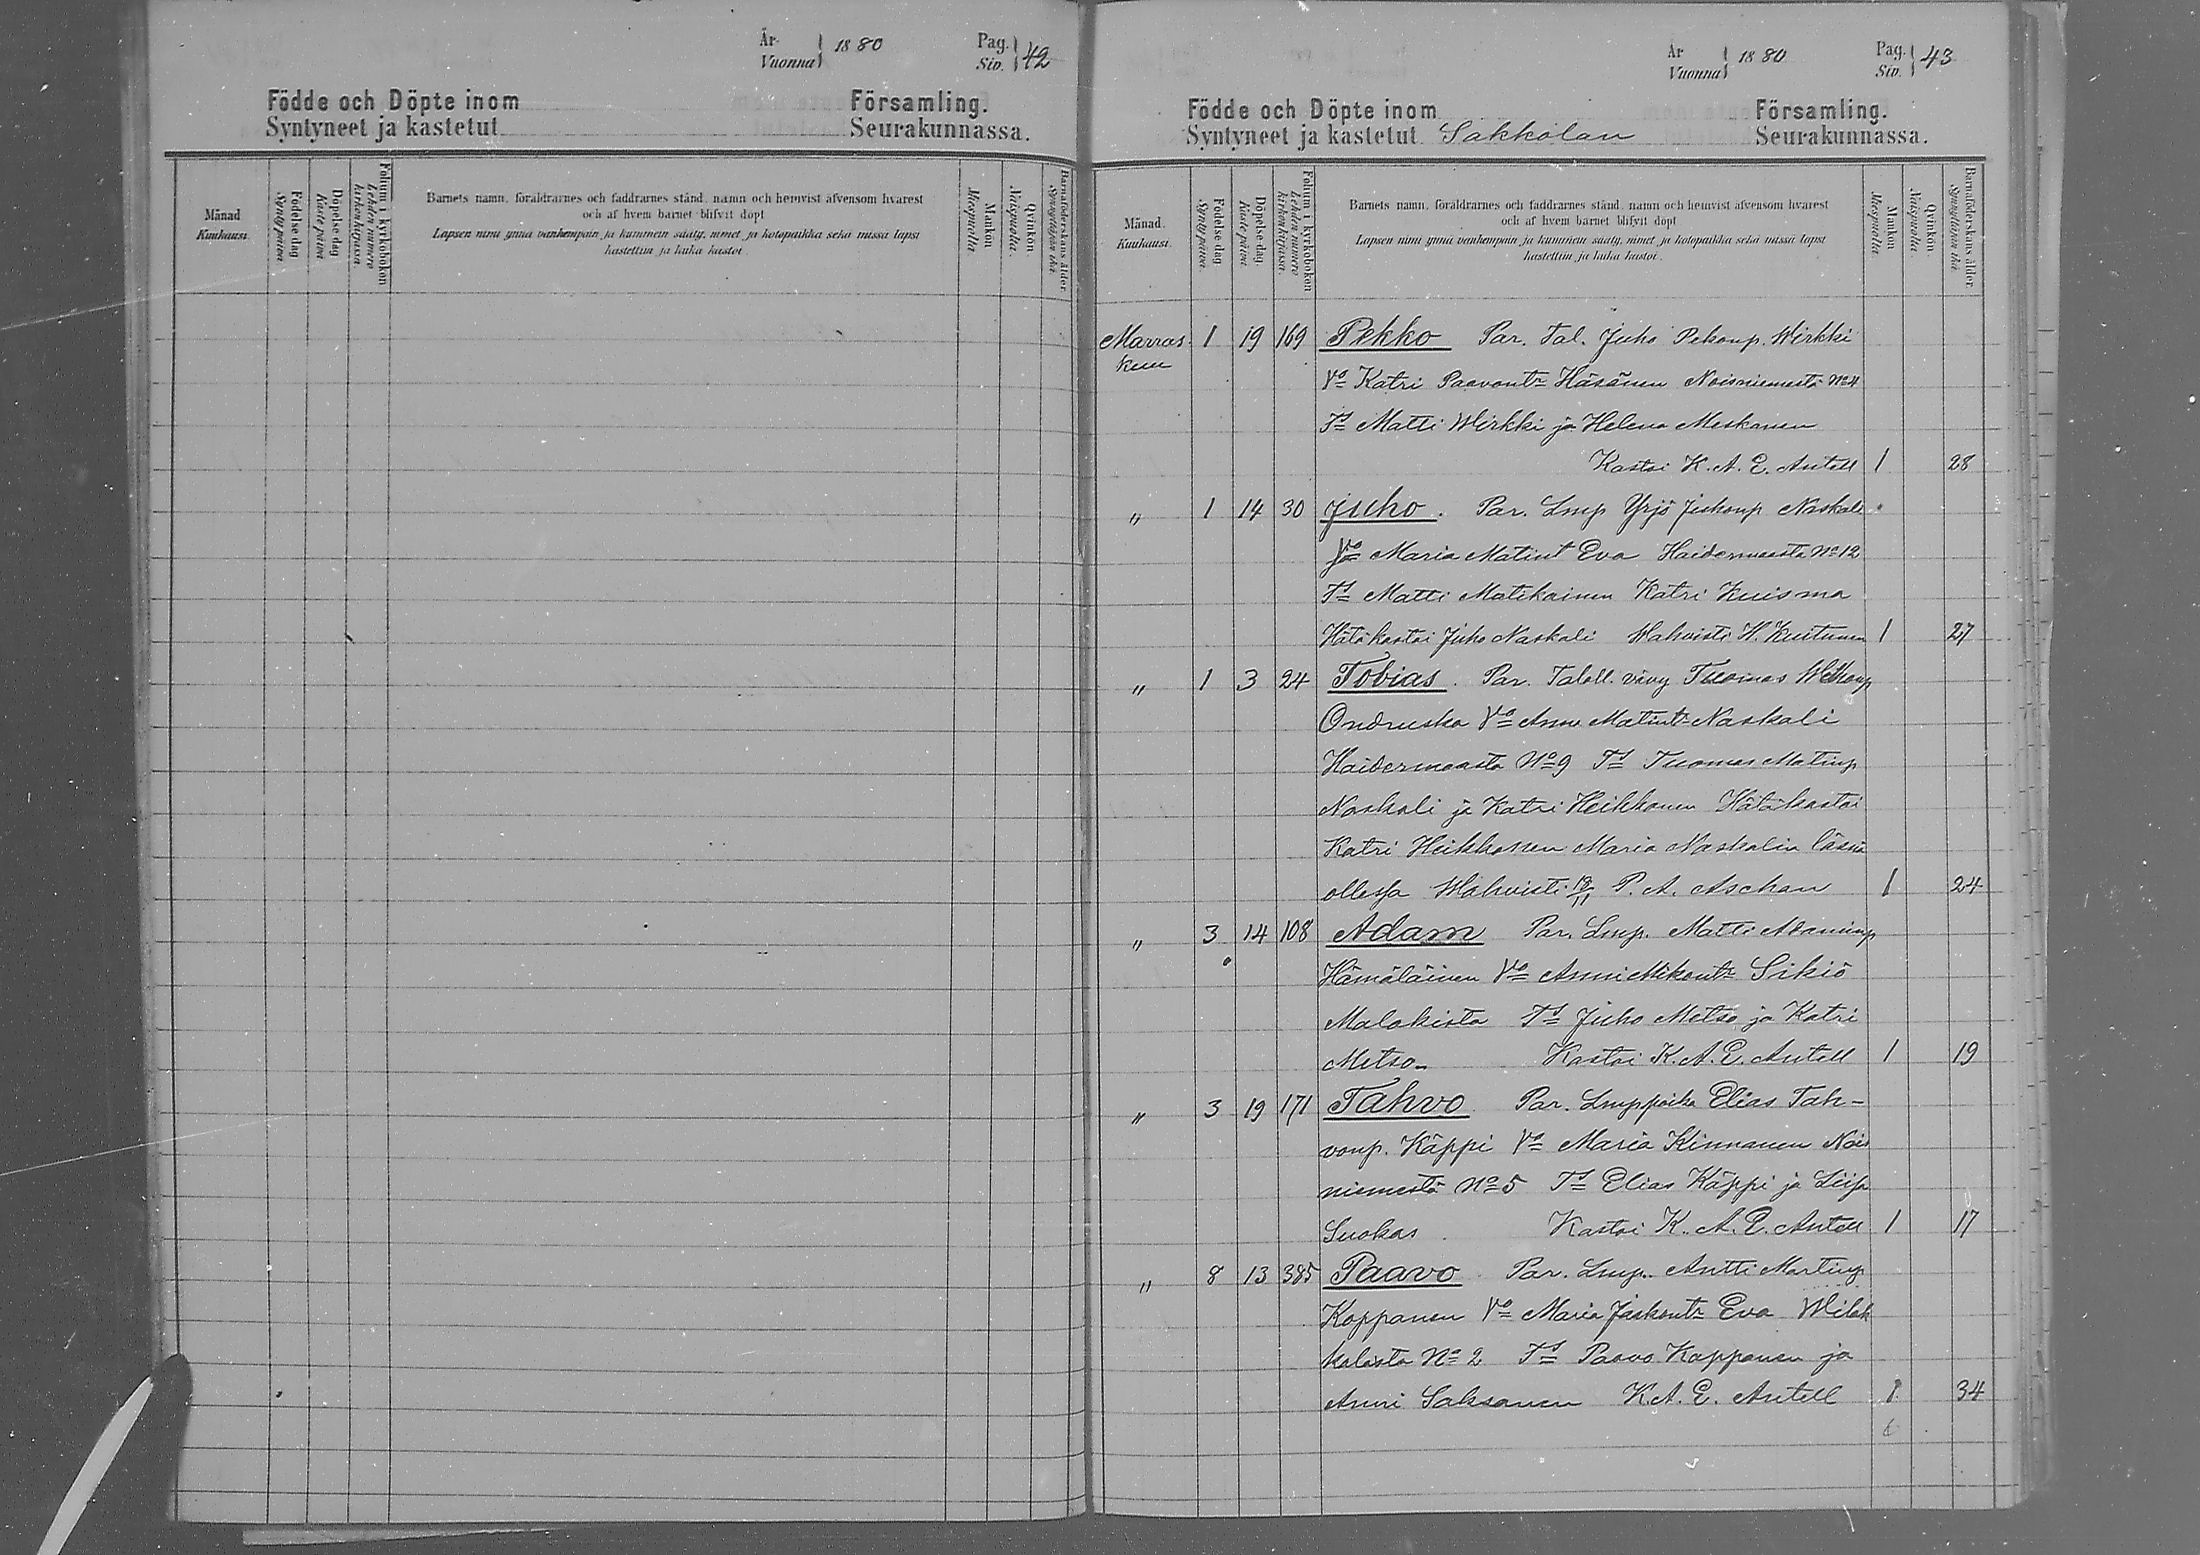 År 1880 Pag. 42
Vuonna Siv.
Födde och Döpte inom Församling.
Syntyneet ja kastetut Seurakunnassa.
Månad
Kuukausi.
Födelse dag
Syntymä päivä
Döpelse dag
Kaste päivä
Folium i kyrkoboken
Lehden numero kirkonkirjassa
Barnets namn, föräldrarnes och faddrarnes stånd, namn och hemvist äfvensom hvarest
och af hvem barnet blifvit döpt
Lapsen nimi ynnä vanhempain ja kummein sääty, nimet ja kotopaikka sekä missä lapsi
kastettiin ja kuka kastoi.
Mankön
Miespuolia
Qvinkön
Naispuolia
Barnaföderskans ålder
Synnyttäjän ikä
År 1880 Pag. 43
Vuonna Siv.
Födde och Döpte inom Församling.
Syntyneet ja kastetut Sakkolan Seurakunnassa.
Månad
Kuukausi.
Födelse dag
Synty päivä
Döpelse dag
Kaste päivä
Folium i kyrkoboken
Lehden numero kirkonkirjassa
Barnets namn, föräldrarnes och faddrarnes stånd, namn och hemvist äfvensom hvarest
och af hvem barnet blifvit döpt
Lapsen nimi ynnä vanhempain ja kummein sääty, nimet ja kotopaikka sekä missä lapsi
kastettiin ja kuka kastoi.
Mankön
Miespuolia
Qvinkön
Naispuolia
Barnaföderskans ålder
Synnyttäjän ikä
Marras 1 19 169 Pekko Par. Tal. Juho Pekonp. Wirkki
kuu
Vo Katri Paavontr Häsänen Noisniemestä No 4
Ts Matti Wirkki ja Helena Meskanen
Kastoi K. A. E. Antell 1 28
" 1 14 30 Juho. Par. Lmp Yrjö Juhonp Naskali
Vo Maria Matint Eva Haidermaasta No 12
Ts Matti Matikainen Katri Kuisma
Hätäkastoi Juho Naskali Wahvisti H. Kuitunen 1 27
" 1 3 24 Tobias. Par. Taloll. vävy Tuomas
Ondruska Vo Anna Matintr Naskali
Haidermaasta No 9 Ts Tuomas Matinp
Naskali ja Katri Heikkonen Hätäkastoi
Katri Heikkonen Maria Naskalin läsnä
ollessa Wahvisti 18/11 P. A. Aschan 1 24
" 3 14 108 Adam Par. Lmp. Matti Adaminp
Hämäläinen Vo Anni Mikontr Sikiö
Malakista Ts Juho Metso ja Katri
Metso. Kastoi K. A. E. Antell 1 19
" 3 19 171 Tahvo Par. Lmppoika Elias Tah-
vonp. Käppi Vo Maria Kinnanen Nois
niemestä No 5 Ts Elias Käppi ja Liisa
Suokas. Kastoi K. A. E. Antell 1 17
" 8 13 385 Paavo Par. Lmp. Antti Martinp
Koppanen Vo Maria Jaakontr Eva Wilak
kalasta No 2 Ts Paavo Koppanen ja
Anni Saksanen K. A. E. Antell 1 34
6